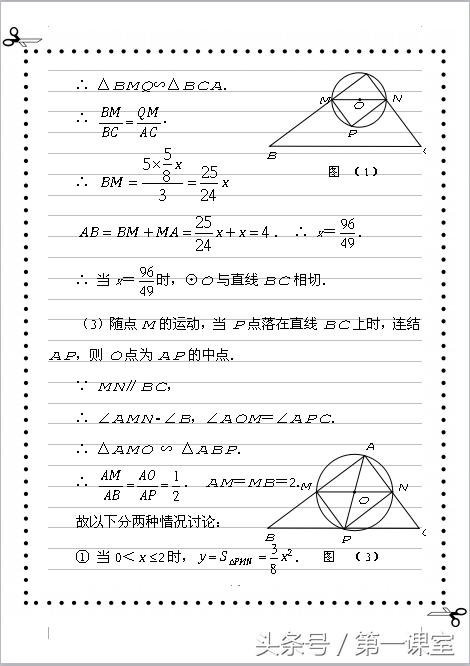 ∴ △BMQ∽△BCA.
∴ BM/BC = QM/AC.
∴ BM = (5×5/8 x)/3 = 25/24 x
AB = BM + MA = 25/24 x + x = 4. ∴ x = 96/49.
∴ 当 x = 96/49 时,⊙O与直线BC相切.
M O N
P
B
图 (1)
(3) 随点M的运动,当P点落在直线BC上时,连结
AP,则O点为AP的中点.
∵ MN∥BC,
∴ ∠AMN=∠B,∠AOM=∠APC.
∴ △AMO ∽ △ABP.
∴ AM/AB = AO/AP = 1/2. AM=MB=2.
故以下分两种情况讨论:
① 当0<x≤2时,y=S△PMN=3/8 x².
A
M O N
B P
图 (3)
头条号 / 第一课室